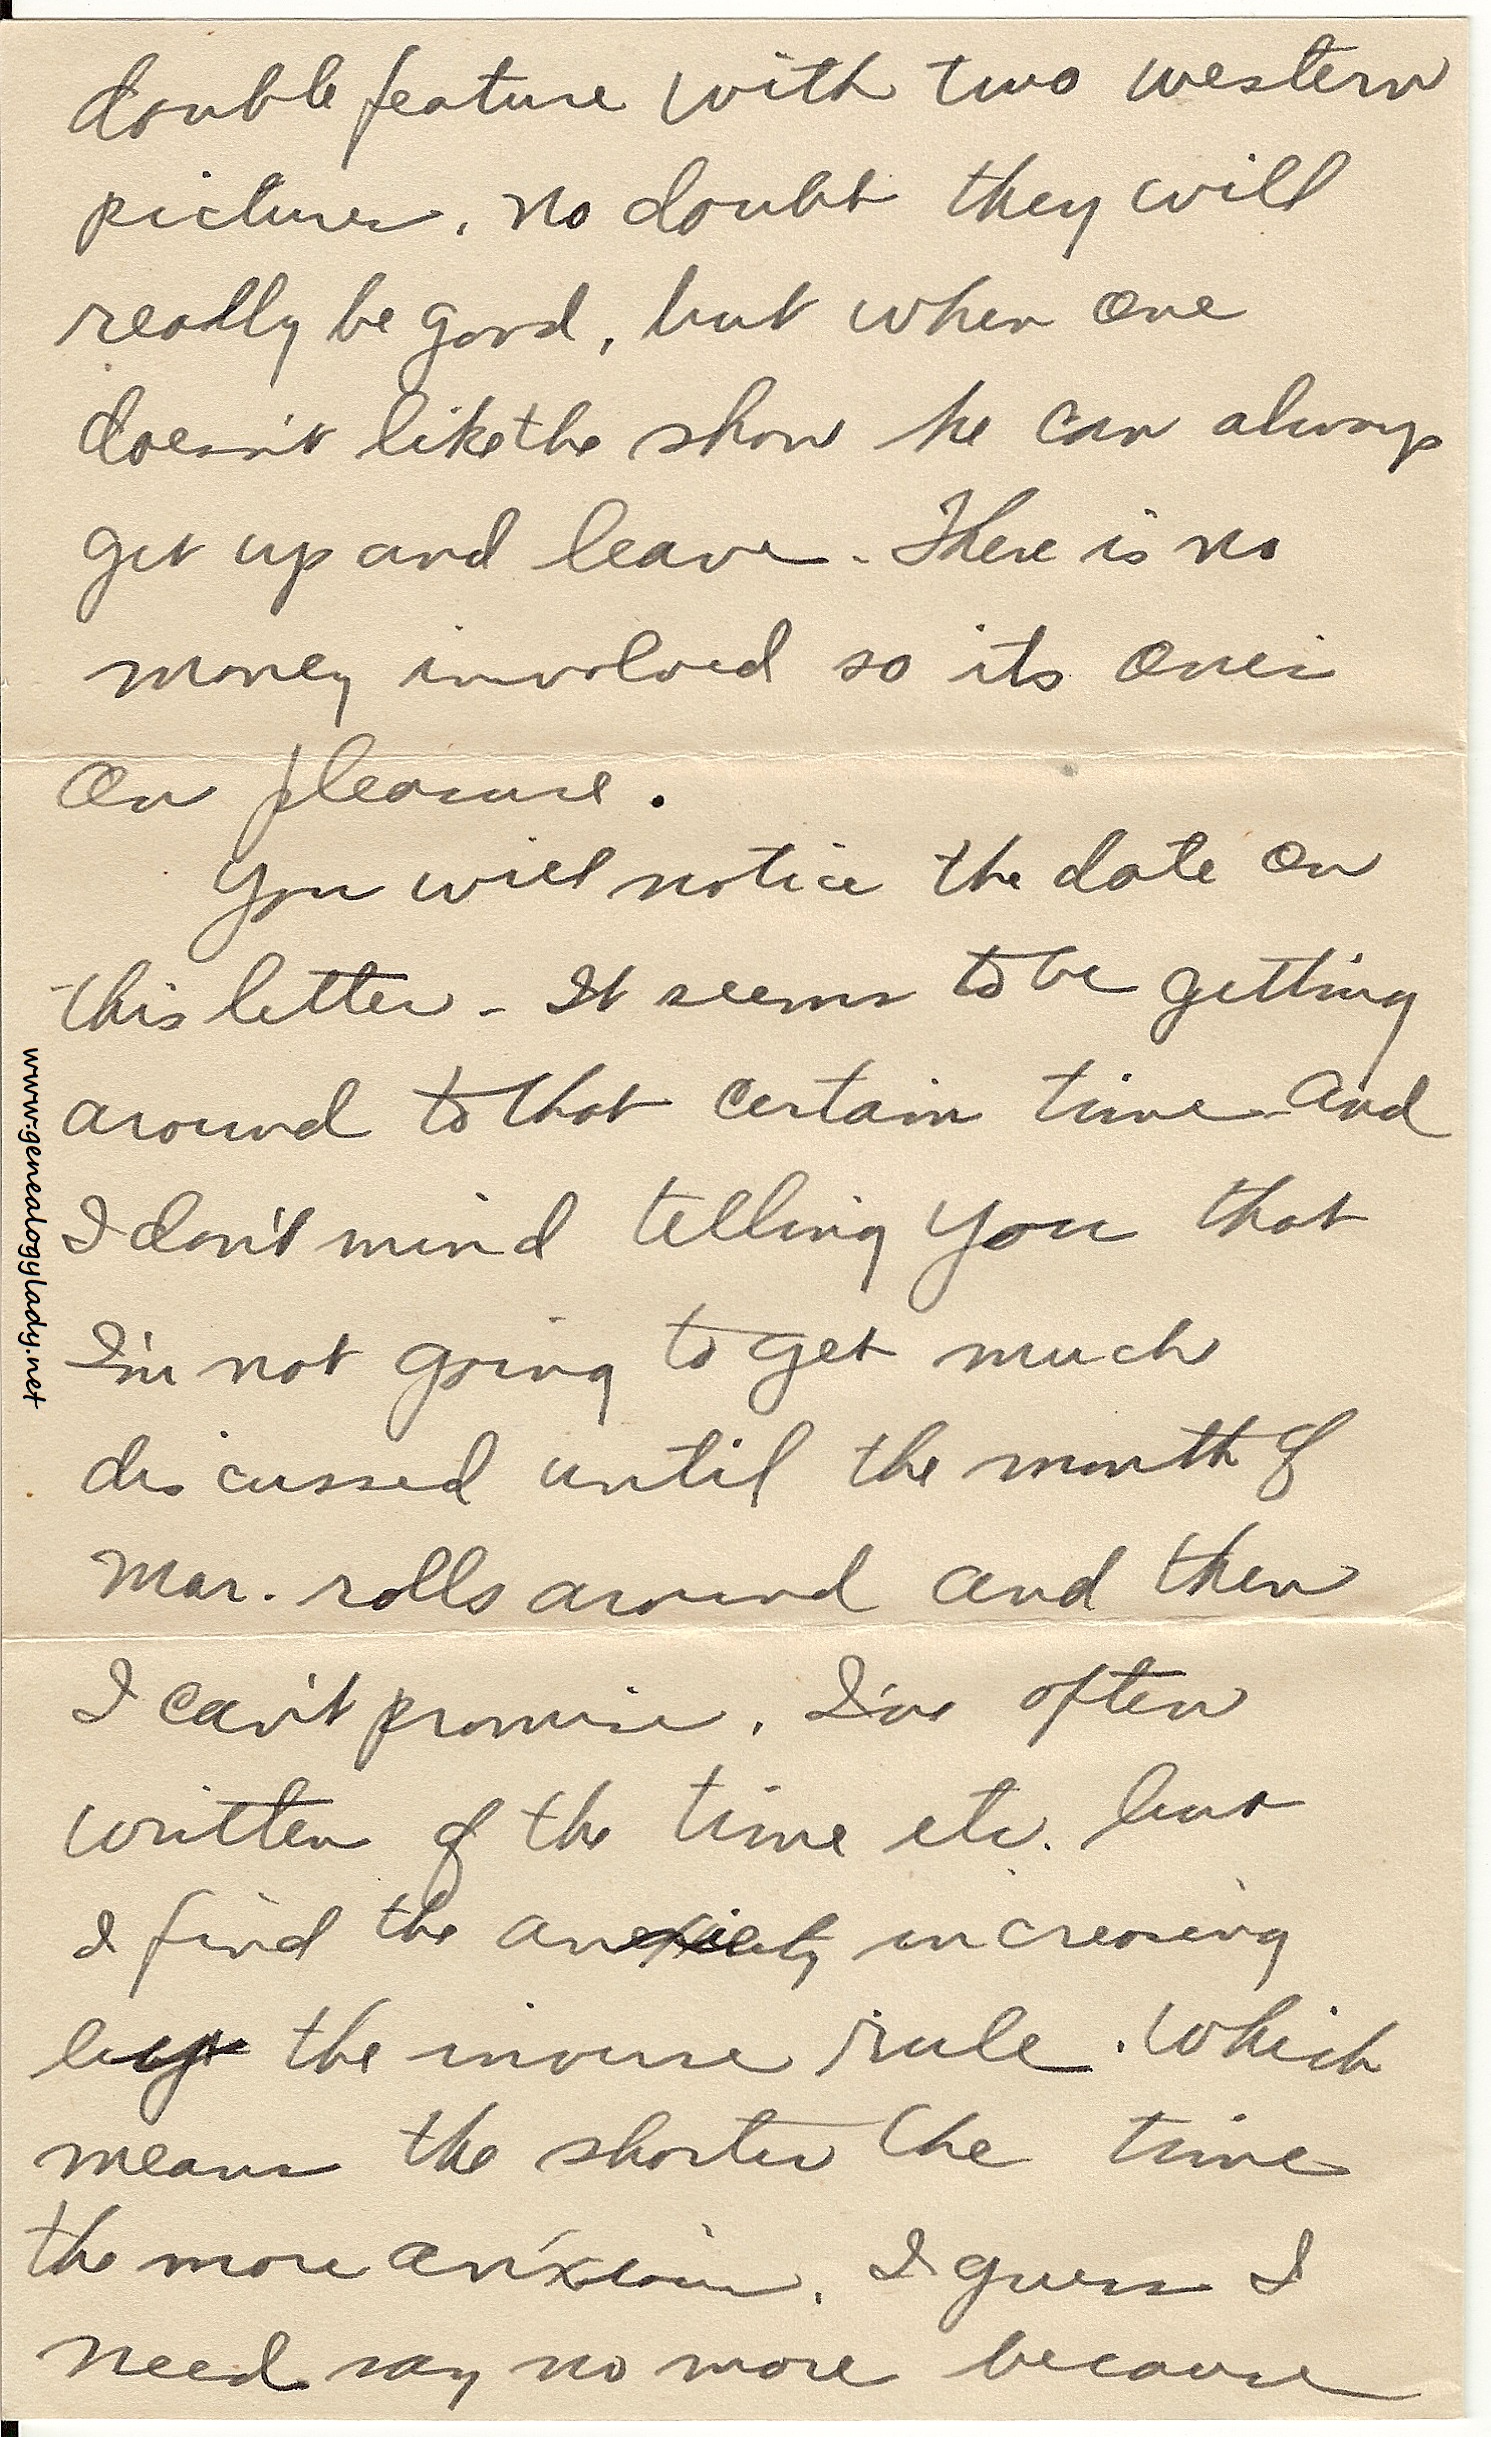 double feature with two western
pictures. No doubt they will
really be good, but when one
doesn't like the show he can always
get up and leave. There is no
money involved so its one's
own pleasure.
You will notice the date on
this letter - It seems to be getting
around to that certain time and
I don't mind telling you that
I'm not going to get much
discussed until the month of
Mar. rolls around and then
I can't promise. I've often
written of the time etc. but
I find the anxiety increasing
by the inverse rule. Which
means the shorter the time
the more anxious. I guess I
need say no more because
www.genealogylady.net